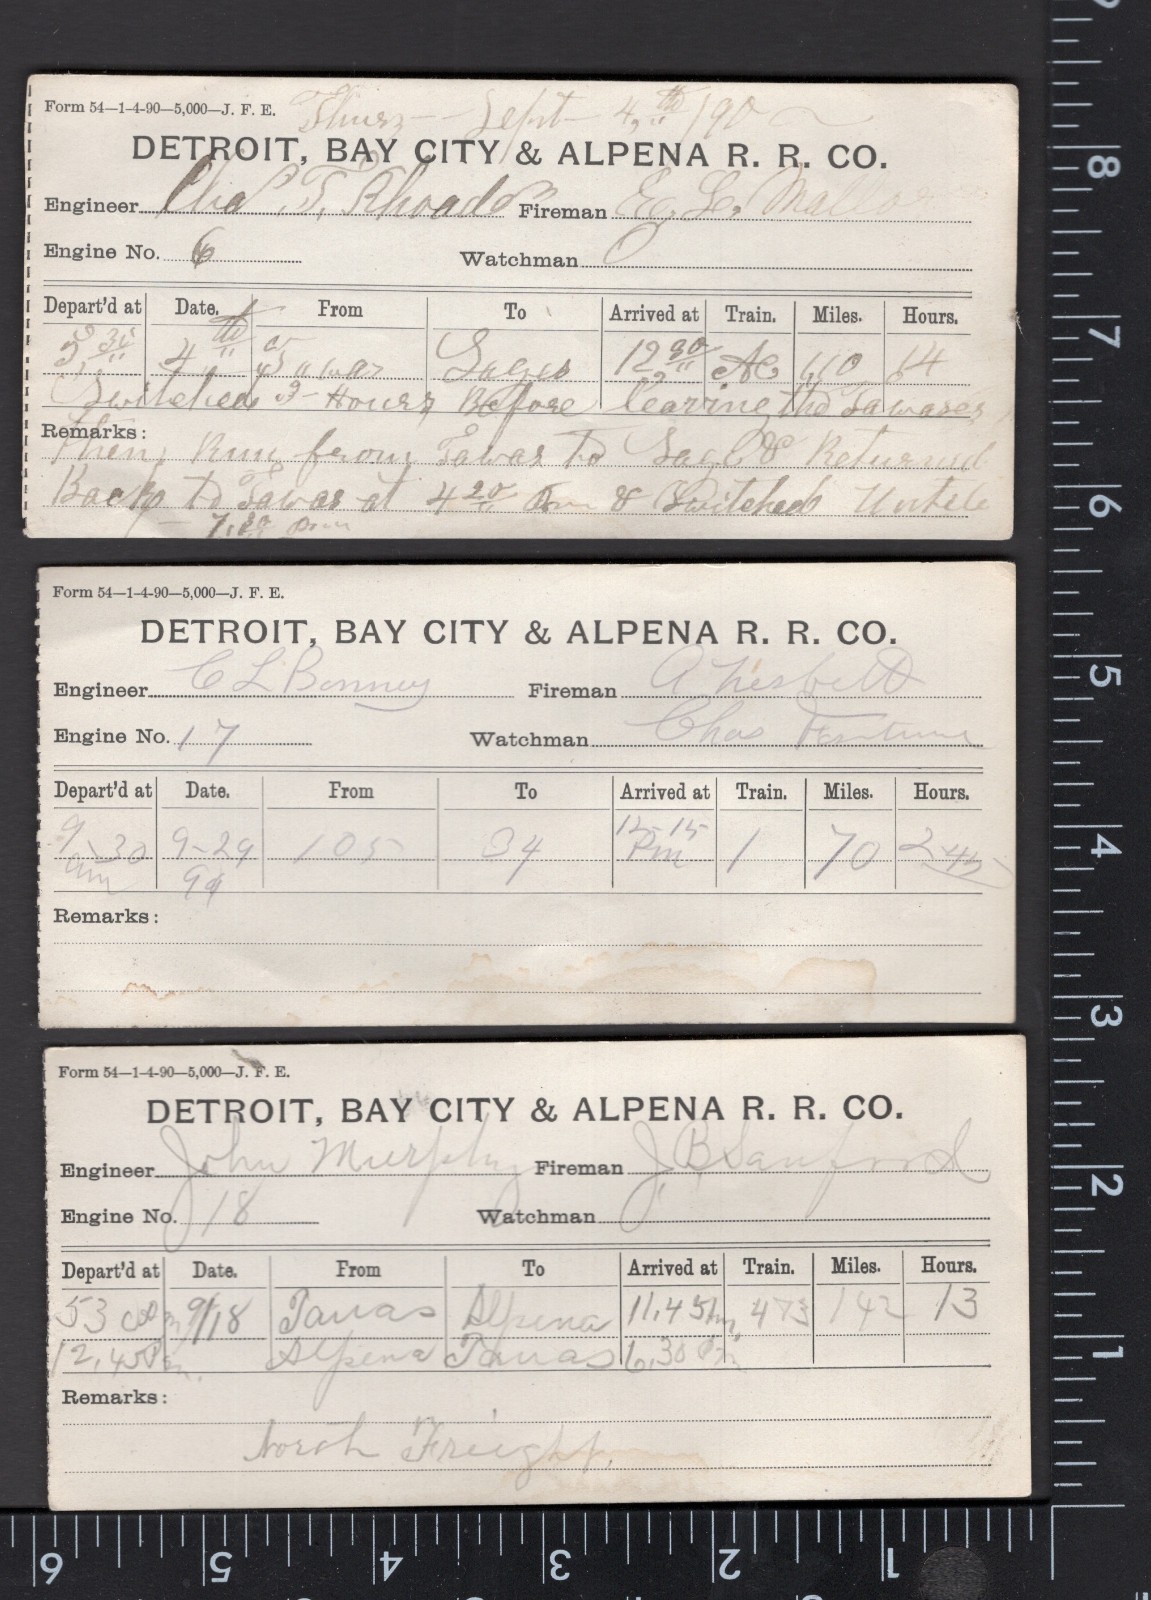 Form 54—1-4-90—5,000—J. F. E.
Thurs — Sept 4th / 90
DETROIT, BAY CITY & ALPENA R. R. CO.
Engineer Chas T. Rhoads Fireman
Engine No. 6 Watchman
Depart'd at Date. From To Arrived at Train. Miles. Hours.
4th 12 30 14
Switched 3 Hours Before leaving the Tawases
Remarks:
then Run from Tawas to & Returned
Back to Tawas at 4 20 & Switched Untill
7.30 pm
Form 54—1-4-90—5,000—J. F. E.
DETROIT, BAY CITY & ALPENA R. R. CO.
Engineer C L Bonney Fireman A Nesbitt
Engine No. 17 Watchman Chas
Depart'd at Date. From To Arrived at Train. Miles. Hours.
9-30 am 9-29 105 34 12-15 Pm 1 70 2 45
Remarks:
Form 54—1-4-90—5,000—J. F. E.
DETROIT, BAY CITY & ALPENA R. R. CO.
Engineer John Murphy Fireman J. B. Sanford
Engine No. 18 Watchman
Depart'd at Date. From To Arrived at Train. Miles. Hours.
9/18 Tawas Alpena 11,45 142 13
12,45 Pm. Alpena Tawas 6,30 Pm
Remarks:
North Freight.
8
7
6
5
4
3
2
1
6
5
4
3
2
1